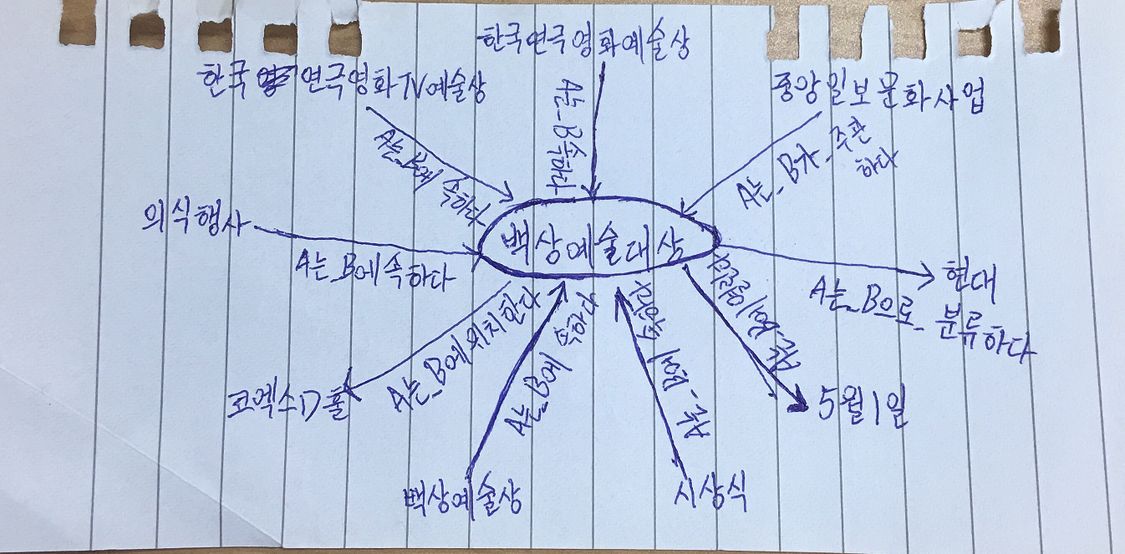 한국연극영화예술상
한국 연극영화TV예술상
중앙일보문화사업
A는_B에 속하다
A는_B속하다
A는_B가_주관
하다
의식행사
백상예술대상
A는_B에속하다
현대
A는_B으로_
분류하다
A는_B에위치한다
A는_B에 속하다
A는_B에 속한다
A는_B에
코엑스D홀
5월1일
백상예술상
시상식